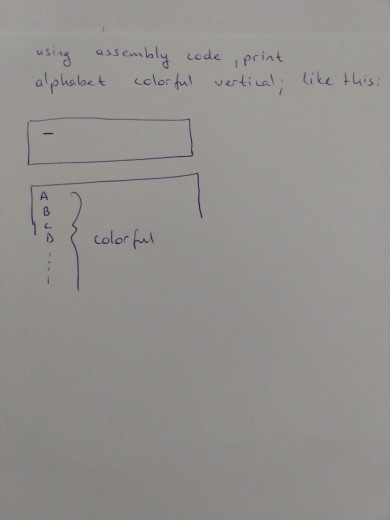 using assembly code , print
alphabet colorful vertical; like this:
A
B
C
D
colorful